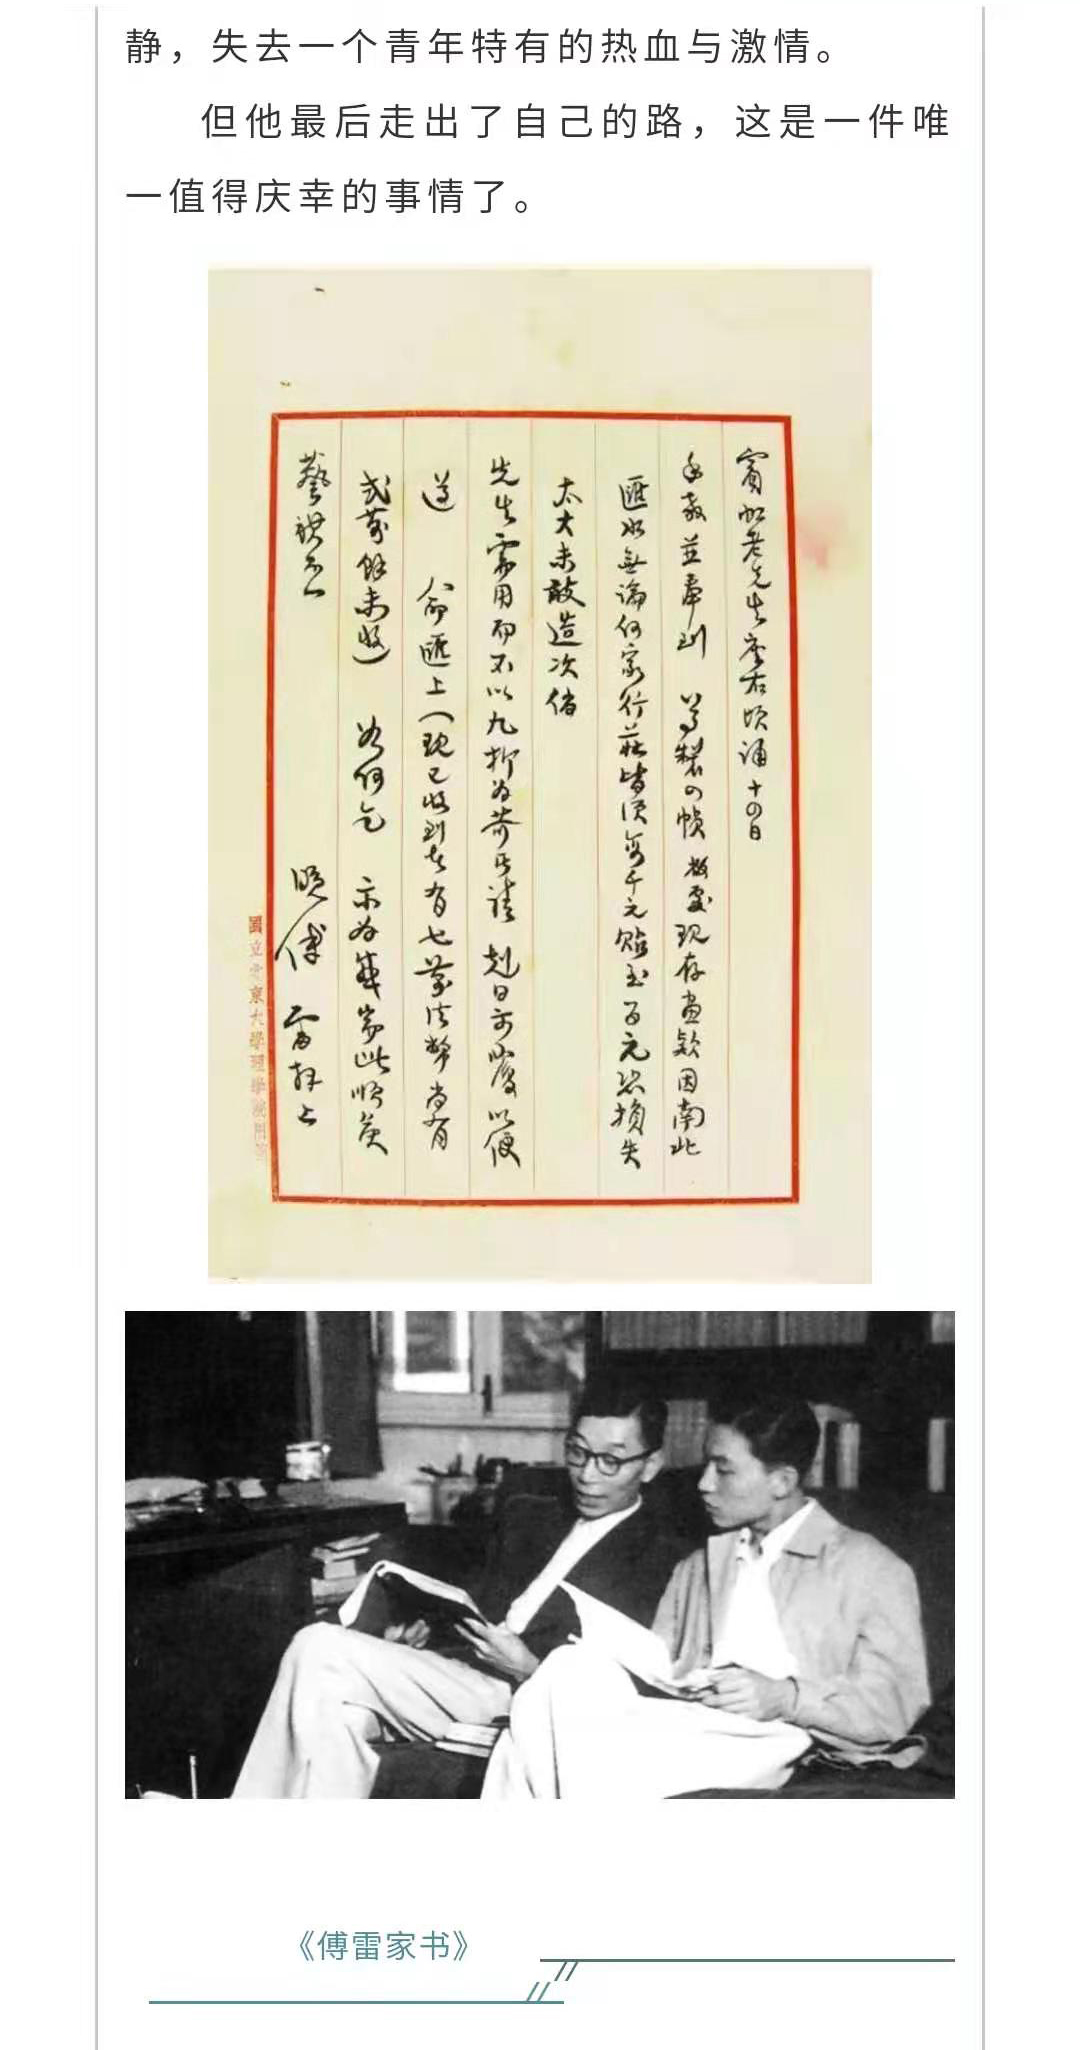 静，失去一个青年特有的热血与激情。
但他最后走出了自己的路，这是一件唯
一值得庆幸的事情了。
賓虹老先生座右頃誦十四日
手教並奉到 尊製四幀 敝處現存畫款因南北
匯水無論何家行莊皆須每千元貼至百元恐損失
太大未敢造次倘
先生需用而不以九折為苛乞請 剋日示覆以便
遵 命匯上（現已收到者有七萬法幣尚有
弍萬餘未收） 如何乞 示為感耑此順頌
藝祺不一
晚傅 雷拜上
國立北京大學理學院用箋
《傅雷家书》